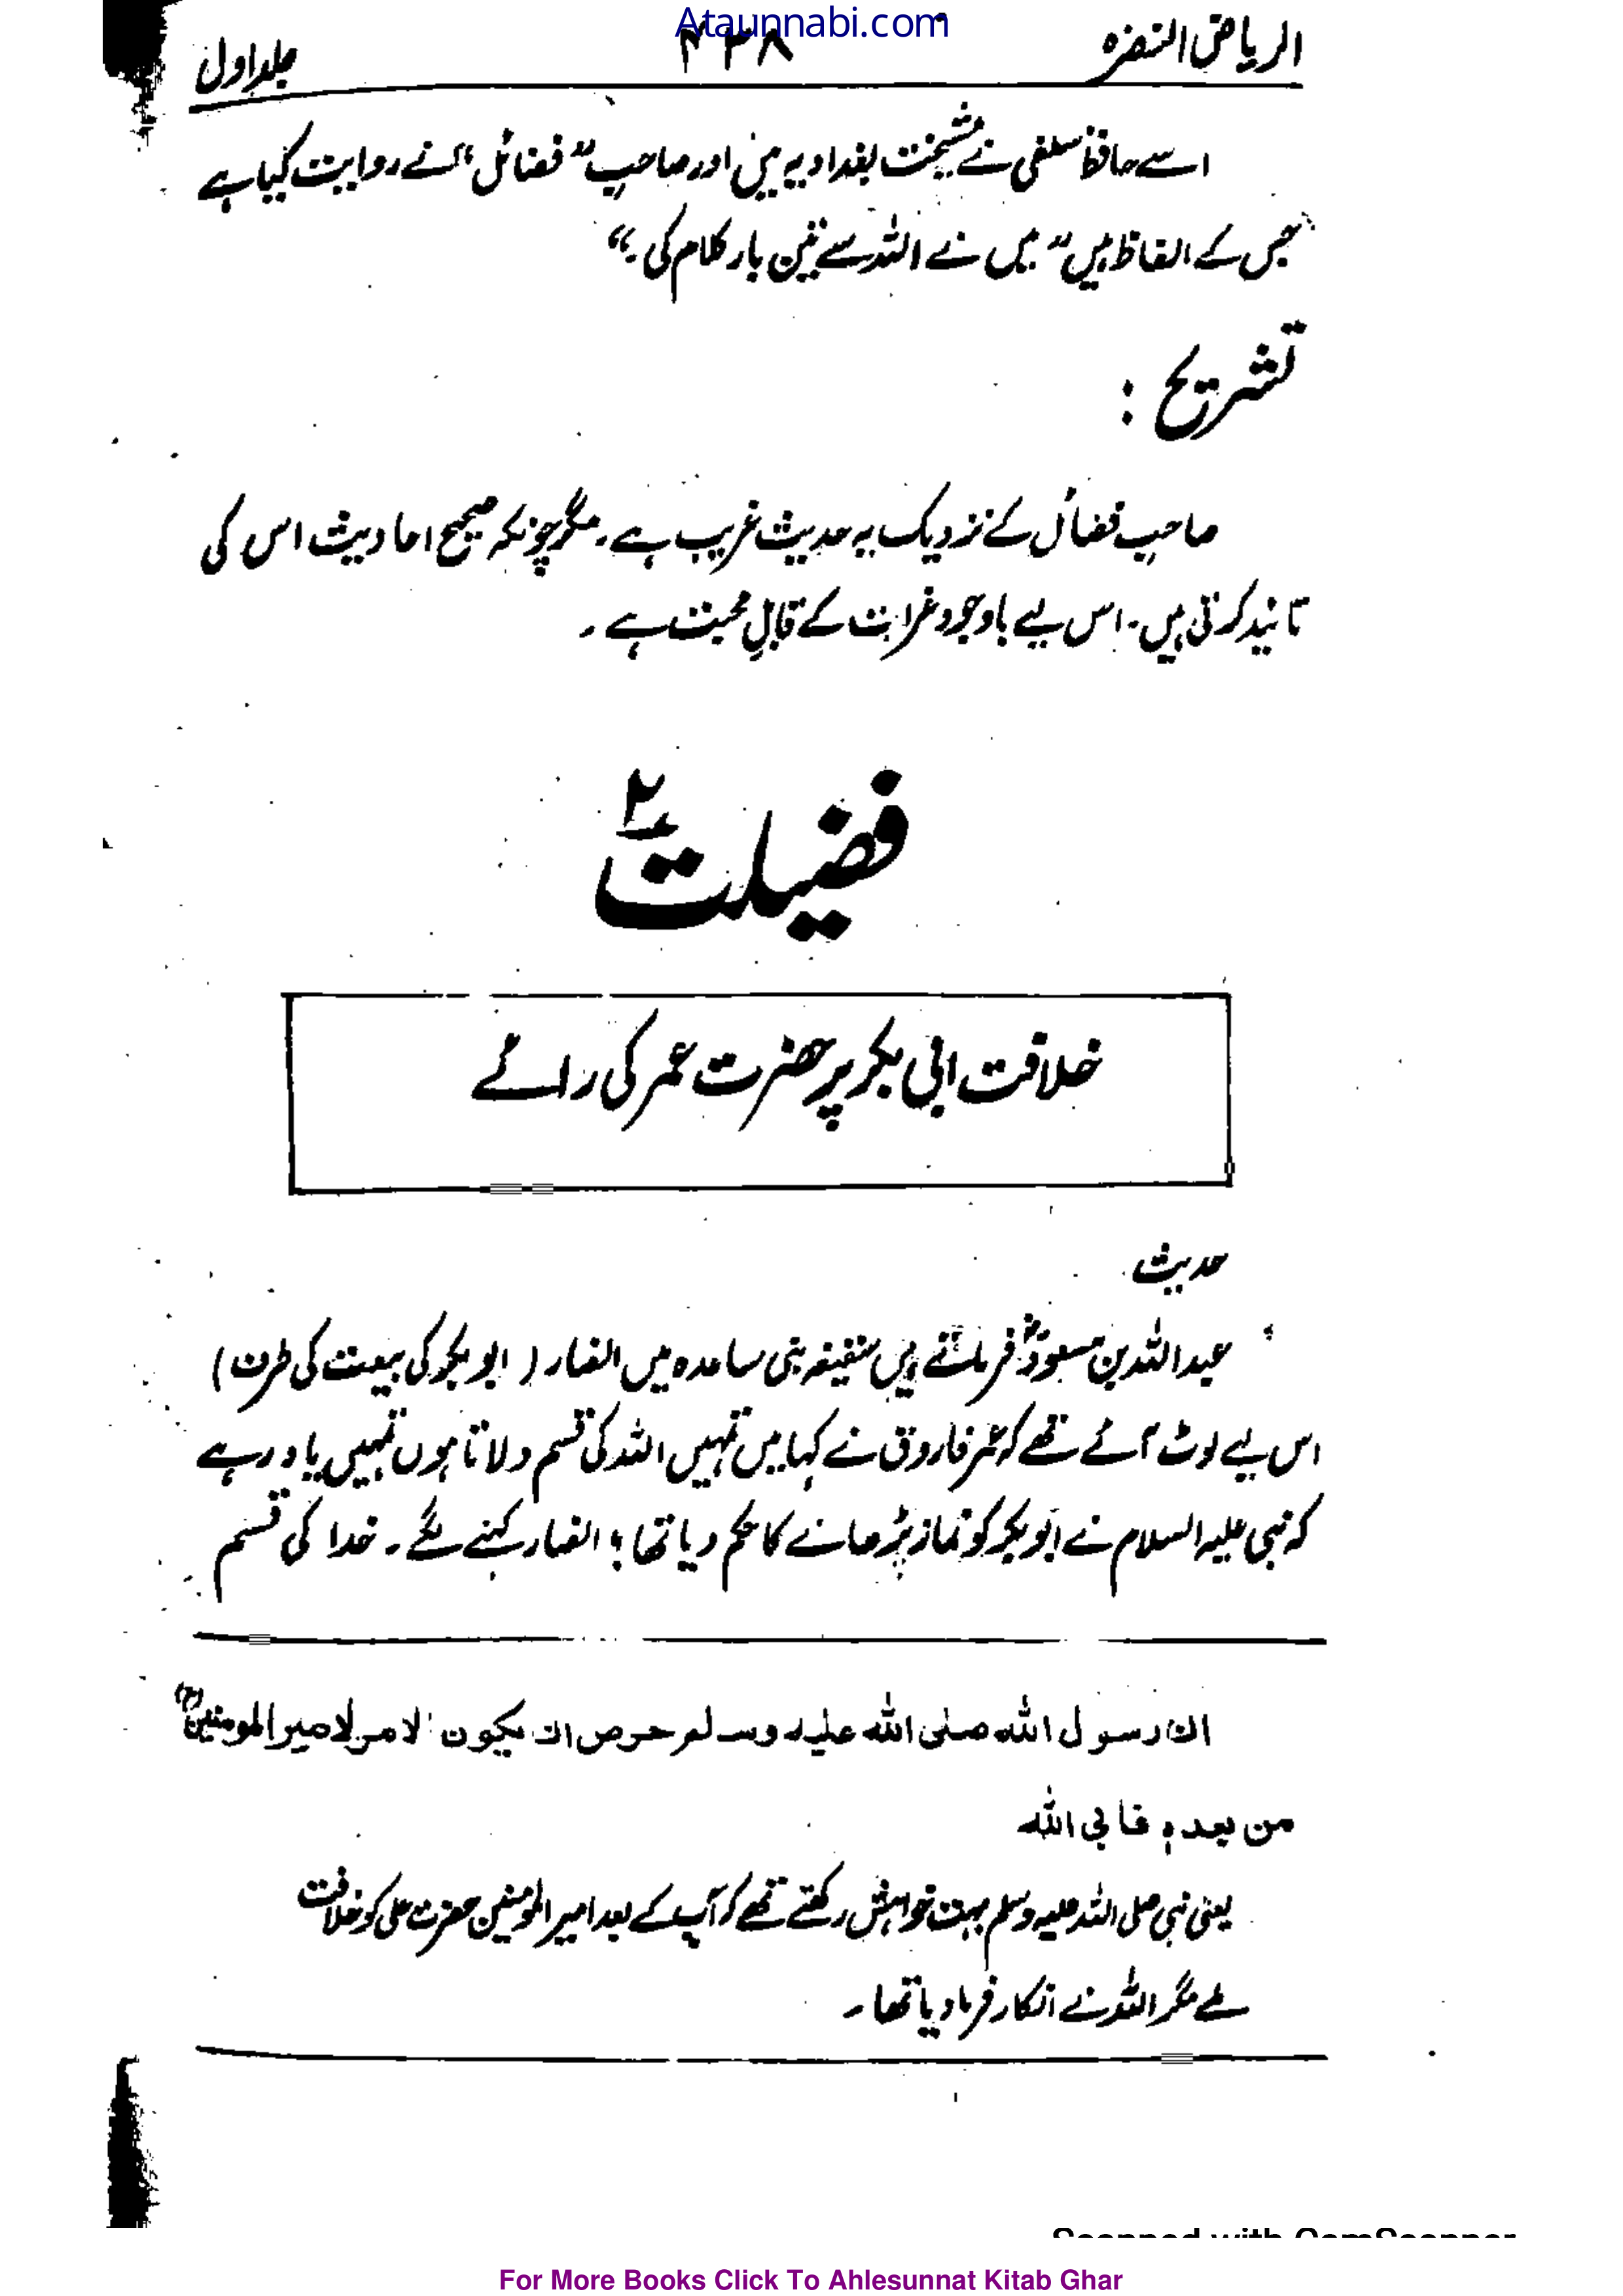 Ataunnabi.com
الریاض النضرہ ۴۳۸ جلد اول
اسے حافظ سلفی نے مشیخت بغدادیہ میں اور صاحبِ ”فضائل“ نے روایت کیا ہے
جس کے الفاظ ہیں ”میں نے اللہ سے تین بار کلام کی۔“
تشریح :
صاحبِ فضائل کے نزدیک یہ حدیث غریب ہے۔ مگر چونکہ صحیح احادیث اس کی
تائید کرتی ہیں۔ اس لیے باوجود غرابت کے قابلِ حجیت ہے۔
فضیلت ۲
خلافت ابی بکر پر حضرت عمر کی رائے
حدیث
عبداللہ بن مسعودؓ فرماتے ہیں سقیفہ بنی ساعدہ میں انصار (ابوبکر کی بیعت کی طرف)
اس لیے لوٹ آئے تھے کہ عمر فاروق نے کہا میں تمہیں اللہ کی قسم دلاتا ہوں تمہیں یاد رہے
کہ نبی علیہ السلام نے ابوبکر کو نماز پڑھانے کا حکم دیا تھا؟ انصار کہنے لگے۔ خدا کی قسم
ان رسول اللہ صلی اللہ علیہ وسلم حرص ان یکون الامر لامیر المومنینؑ
من بعدہ فابی اللہ
یعنی نبی صلی اللہ علیہ وسلم بہت خواہش رکھتے تھے کہ آپ کے بعد امیر المومنین حضرت علی کو خلافت
ملے مگر اللہ نے انکار فرما دیا تھا۔
Scanned with CamScanner
For More Books Click To Ahlesunnat Kitab Ghar